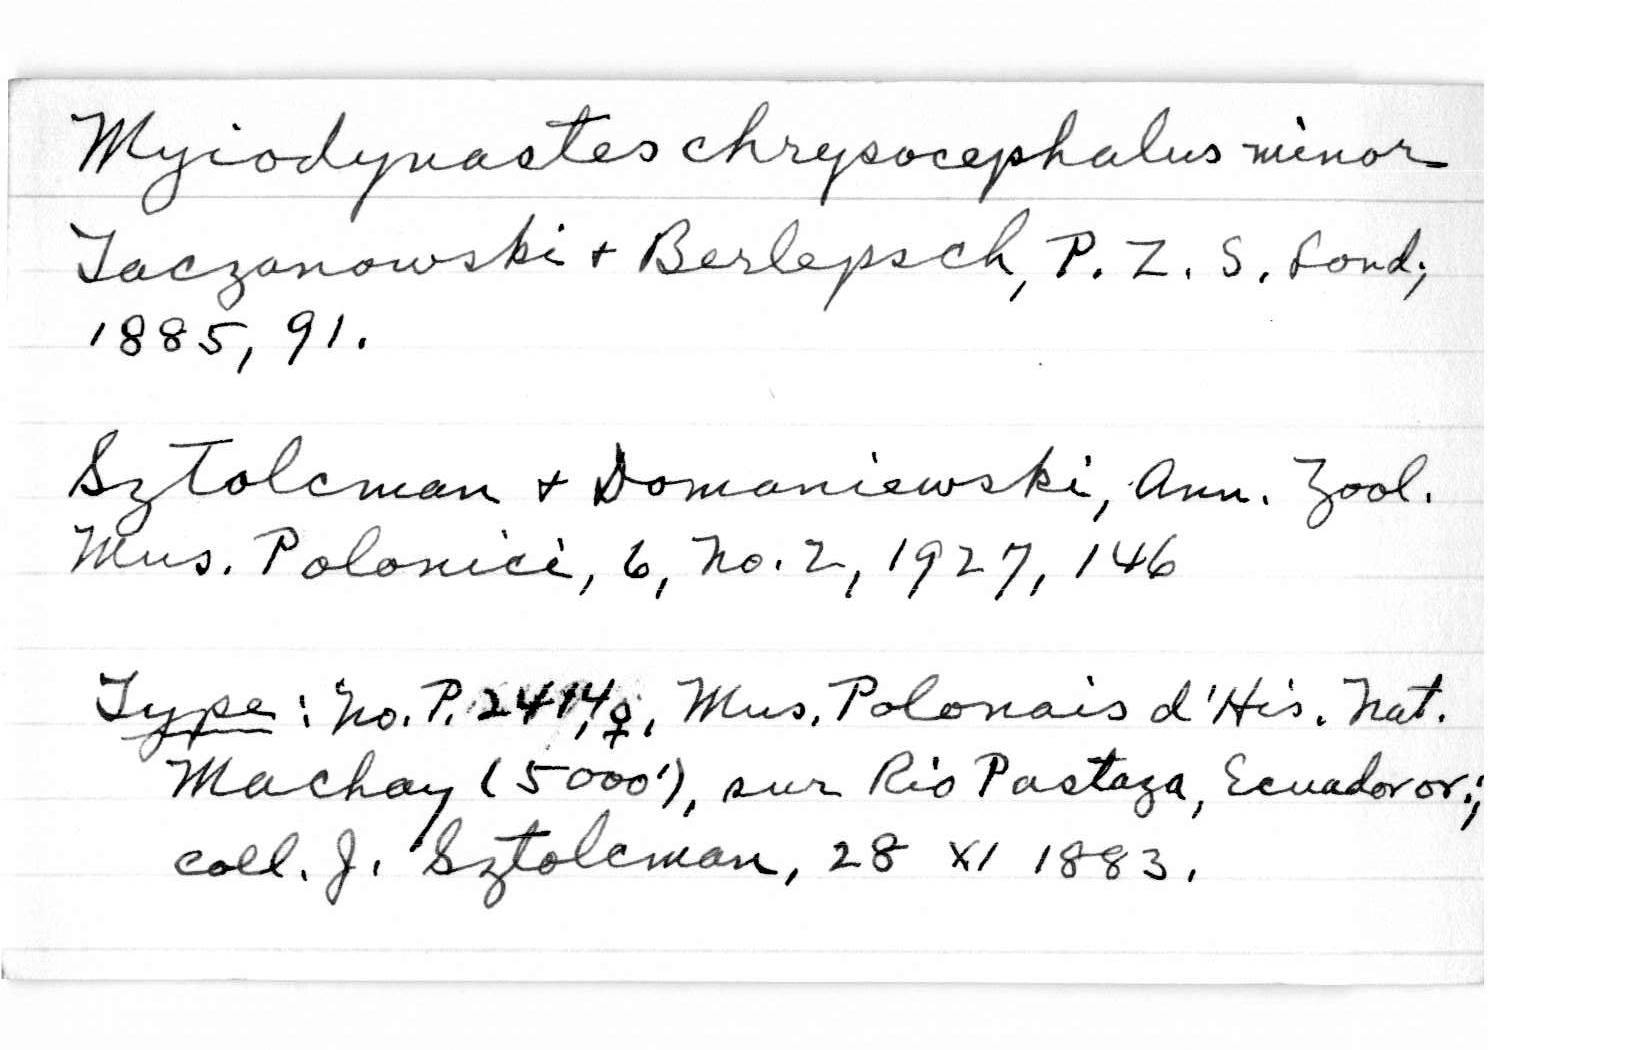 Myiodynastes chrysocephalus minor
Taczanowski + Berlepsch, P. Z. S. Lond;
1885, 91.
Sztolcman + Domaniewski, Ann. Zool.
Mus. Polonici, 6, No. 2, 1927, 146
Type: No. P. 2414, ♀. Mus. Polonais d'His. Nat.
Machay (5000'), sur Rio Pastaza, Ecuador or.;
coll. J. Sztolcman, 28 XI 1883.